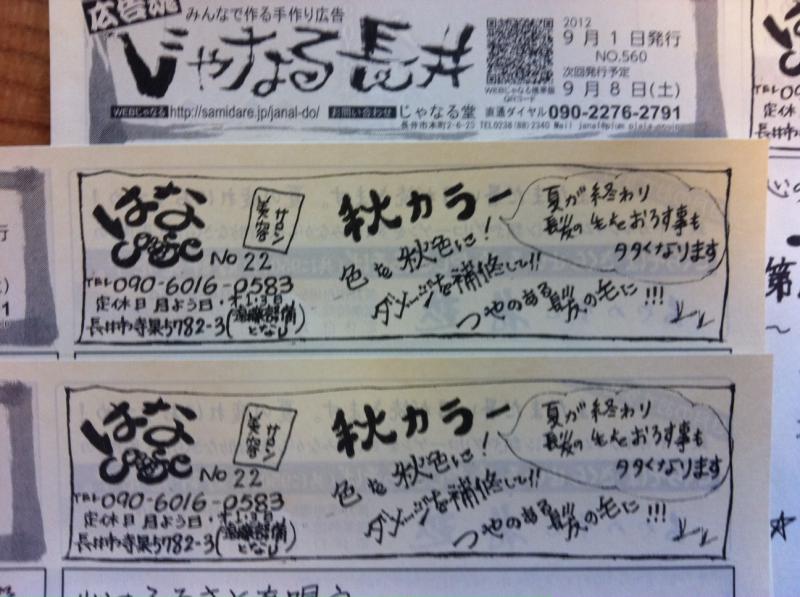 広告魂 みんなで作る手作り広告
じゃなる長井
2012
9月1日発行
NO.560
次回発行予定
9月8日(土)
WEBじゃなる携帯版
QRコード
WEBじゃなる http://samidare.jp/janal-do/ お問い合わせ じゃなる堂 直通ダイヤル 090-2276-2791
長井市本町2-6-23 TEL0238(88)2340
はな
美容サロン
No 22
TEL 090-6016-0583
定休日 月よう日・オ1・3日
長井市寺泉5782-3(となり)
秋カラー
色も秋色に!
ダメージを補修して!!
つやのある髪の毛に!!!
夏が終わり
髪の毛をおろす事も
多くなります
はな
美容サロン
No 22
TEL 090-6016-0583
定休日 月よう日・オ1・3日
長井市寺泉5782-3(となり)
秋カラー
色も秋色に!
ダメージを補修して!!
つやのある髪の毛に!!!
夏が終わり
髪の毛をおろす事も
多くなります